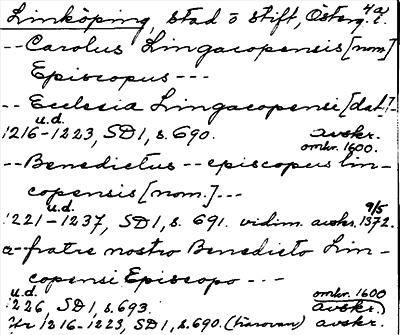 Linköping, stad o stift, Österg. l.
4a
--Carolus Lingacopensis [nom.]
Episcopus ---
-- Ecclesia Lingacopensi [dat.]-
u.d.
1216-1223, SD1, s. 690. avskr.
omkr. 1600.
--Benedictus -- episcopus lin-
copensis [nom.]---
u.d. 9/5
1221-1237, SD1, s. 691. vidim. avskr. 1372.
a-fratre nostro Benedicto Lin-
copensi Episcopo ---
u.d. omkr. 1600
1226, SD1, s. 693. avskr.
1216-1223, SD1, s. 690. avskr.